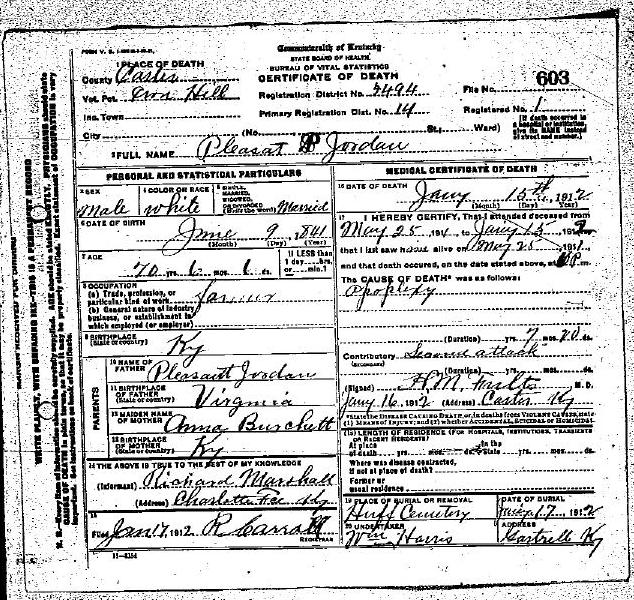 Commonwealth of Kentucky
STATE BOARD OF HEALTH
BUREAU OF VITAL STATISTICS
CERTIFICATE OF DEATH
1 PLACE OF DEATH
County Carter
Vot. Pct. Iron Hill
Inc. Town
City
Registration District No. 5494
Primary Registration Dist. No. 14
File No. 603
Registered No. 1
(No. St., Ward)
[If death occurred in a hospital or institution, give its NAME instead of street and number.]
2 FULL NAME Pleasat P Jordan
PERSONAL AND STATISTICAL PARTICULARS
3 SEX
Male
4 COLOR OR RACE
white
5 SINGLE, MARRIED, WIDOWED, OR DIVORCED (Write the word) Married
6 DATE OF BIRTH
June 9, 1841
(Month) (Day) (Year)
7 AGE
70 yrs. 6 mos. 6 ds.
If LESS than 1 day....hrs. or....min.?
8 OCCUPATION
(a) Trade, profession, or particular kind of work farmer
(b) General nature of industry business, or establishment in which employed (or employer)
9 BIRTHPLACE
(State or country) Ky
PARENTS
10 NAME OF FATHER Pleasant Jordan
11 BIRTHPLACE OF FATHER (State or country) Virginia
12 MAIDEN NAME OF MOTHER Anna Burchett
13 BIRTHPLACE OF MOTHER (State or country) Ky
14 THE ABOVE IS TRUE TO THE BEST OF MY KNOWLEDGE
(Informant) Richard Marshall
(Address) Charlotte Fce Ky
15
Filed Jan 17, 1912 R Carroll
REGISTRAR
MEDICAL CERTIFICATE OF DEATH
16 DATE OF DEATH
Jany 15th, 1912
(Month) (Day) (Year)
17 I HEREBY CERTIFY, That I attended deceased from
May 25 191 , to Jany 15, 1912
that I last saw h alive on May 25, 1911,
and that death occurred, on the date stated above, at P.m.
The CAUSE OF DEATH* was as follows:
Apoplexy
(Duration) yrs. 7 mos. 20 ds.
Contributory Second attack
(Duration) yrs. mos. ds.
(Signed) H.M. M.D.
Jany 16, 1912 (Address) Carter Ky
*State the DISEASE CAUSING DEATH, or, in deaths from VIOLENT CAUSES, state (1) MEANS OF INJURY; and (2) whether ACCIDENTAL, SUICIDAL or HOMICIDAL.
18 LENGTH OF RESIDENCE (FOR HOSPITALS, INSTITUTIONS, TRANSIENTS OR RECENT RESIDENTS)
At place of death yrs. mos. ds. In the State yrs. mos. ds.
Where was disease contracted, if not at place of death?
Former or usual residence
19 PLACE OF BURIAL OR REMOVAL
Huff Cemetery
DATE OF BURIAL
Jany 17, 1912
20 UNDERTAKER
Wm Harris
ADDRESS
Ky
11-3184